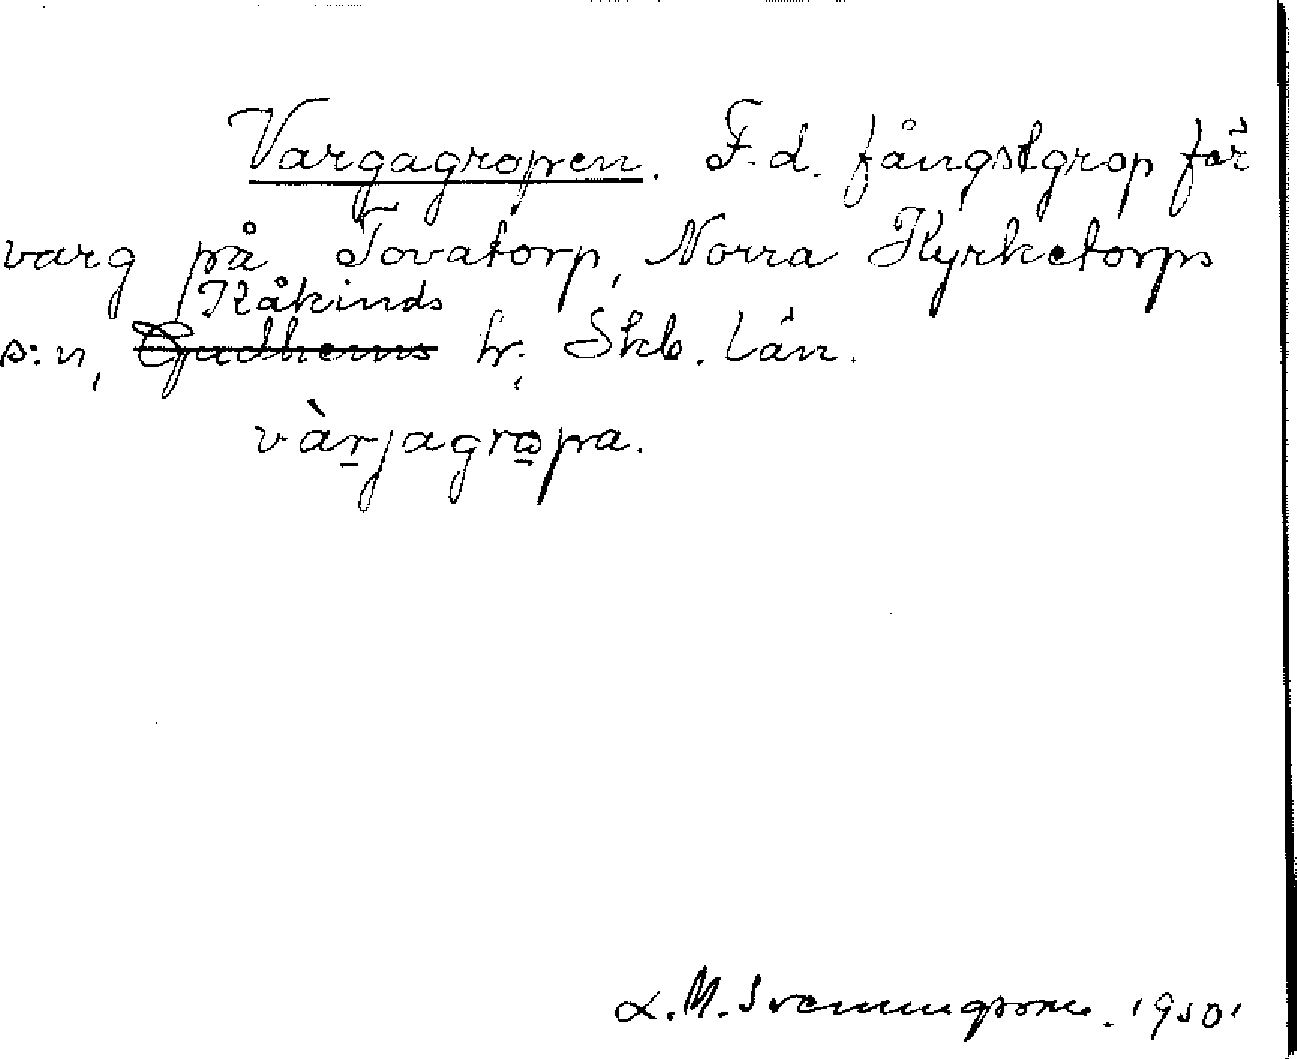 Vargagropen. F.d. fångstgrop för
varg på Tovatorp, Norra Kyrketorps
Kåkinds
s:n, Gudhems hr. Skb. län.
vàrjagrɷpa.
A. M. Svenningsson. 1950